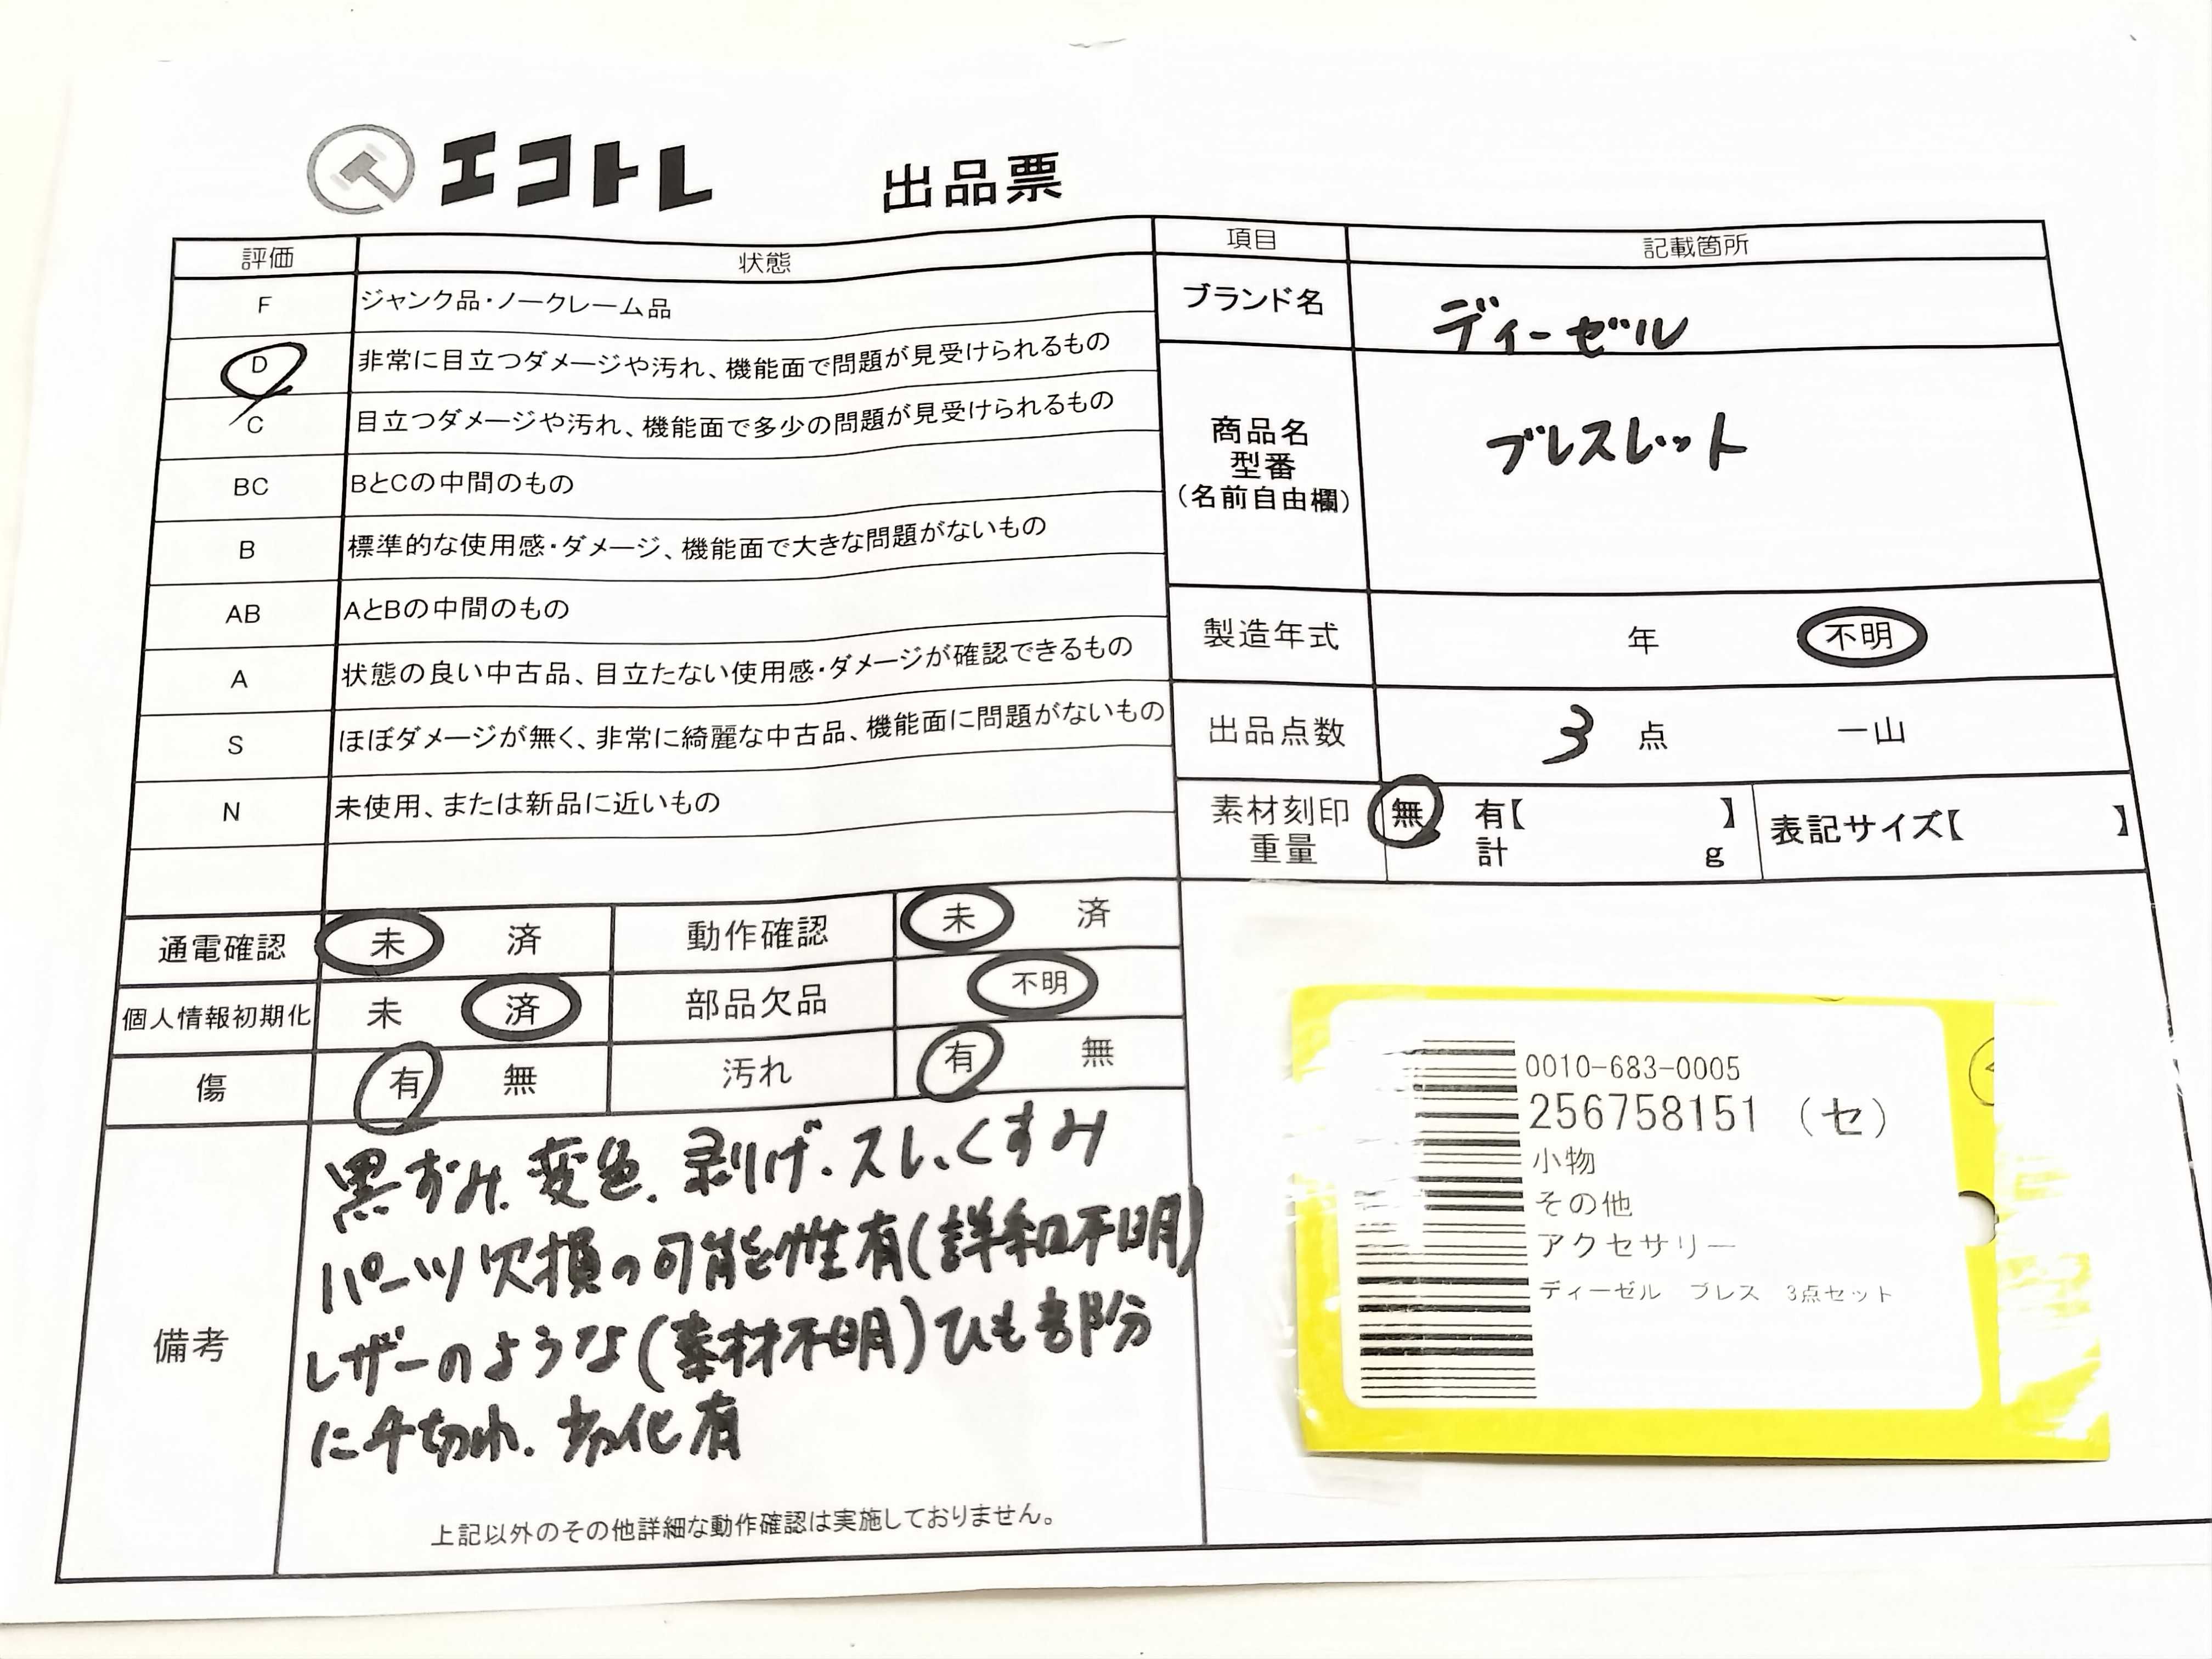 エコトレ 出品票
評価 状態
F ジャンク品・ノークレーム品
D 非常に目立つダメージや汚れ、機能面で問題が見受けられるもの
C 目立つダメージや汚れ、機能面で多少の問題が見受けられるもの
BC BとCの中間のもの
B 標準的な使用感・ダメージ、機能面で大きな問題がないもの
AB AとBの中間のもの
A 状態の良い中古品、目立たない使用感・ダメージが確認できるもの
S ほぼダメージが無く、非常に綺麗な中古品、機能面に問題がないもの
N 未使用、または新品に近いもの
項目 記載箇所
ブランド名 ディーゼル
商品名
型番
(名前自由欄)
ブレスレット
製造年式 年 不明
出品点数 3 点 一山
素材刻印 無 有【 】
重量 計 g
表記サイズ【 】
通電確認 未 済 動作確認 未 済
個人情報初期化 未 済 部品欠品 不明
傷 有 無 汚れ 有 無
備考
黒ずみ、変色、剥げ、スレ、くすみ
パーツ欠損の可能性有(詳細不明)
レザーのような(素材不明)ひも部分
に千切れ、劣化有
上記以外のその他詳細な動作確認は実施しておりません。
0010-683-0005
256758151 (セ)
小物
その他
アクセサリー
ディーゼル ブレス 3点セット